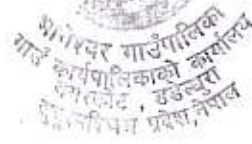 गाउँपालिका
गाउँ कार्यपालिकाको कार्यालय
डडेल्धुरा
सुदूरपश्चिम प्रदेश, नेपाल